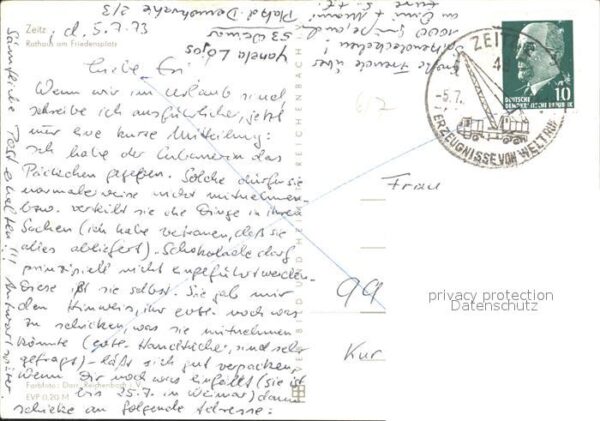 Zeitz, d. 5.7.73
Rathaus am Friedensplatz
Liebe Eri
Wenn wir im Urlaub sind
schreibe ich ausführlicher, jetzt
nur eine kurze Mitteilung:
ich habe der Cubanerin das
Päckchen gegeben. Solche dürfen sie
normalerweise nicht mitnehmen
bzw. verteilt sie die Dinge in ihren
Sachen (ich habe vertrauen, daß sie
alles abliefert). Schokolade darf
prinzipiell nicht eingeführt werden.
Diese ißt sie selbst. Sie gab mir
den Hinweis, ihr evtl. noch was
zu schicken, was sie mitnehmen
könnte (evtl. Handtücher, sind sehr
gefragt) - läßt sich gut verpacken,
wenn Dir noch was einfällt (sie ist
bis 25.7. in Weimar) dann
schicke an folgende Adresse:
53 Weimar
Platz d. Demokratie 2/3
Sämtliche Post erhalten!!! Antwort später.
Farbfoto: Darr, Reichenbach i. V.
EVP 0,20 M
BILD UND HEIMAT REICHENBACH
ZEITZ
-5.7.
ERZEUGNISSE VON WELTRUF
10
DEUTSCHE
DEMOKRATISCHE REPUBLIK
Frau
99
Kur
privacy protection
Datenschutz